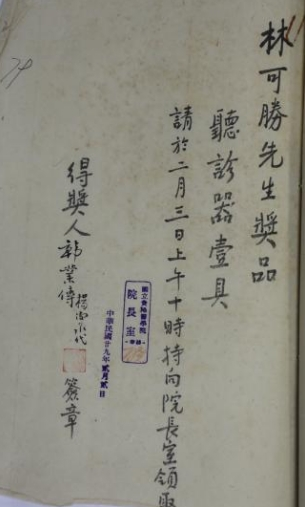 林可勝先生獎品
聽診器壹具
請於二月三日上午十時持向院長室領取
國立貴陽醫學院
院長室
中華民國廿九年貳月貳日
得獎人郭業
代
簽章